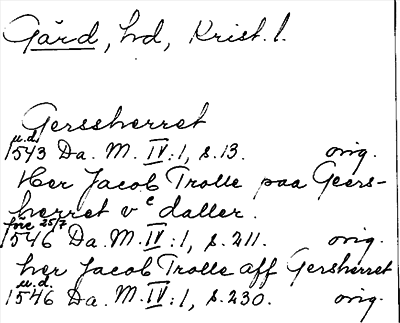 Gärd, hd, Krist. l.
Gerssherret
u.d.
1543 Da. M. IV:1, s. 13. orig.
Her Jacob Trolle paa Geers-
herret vᶜ daller.
före 25/7
1546 Da. M. IV:1, s. 211. orig.
her Jacob Trolle aff Gersherret
u.d.
1546 Da. M. IV:1, s. 230. orig.